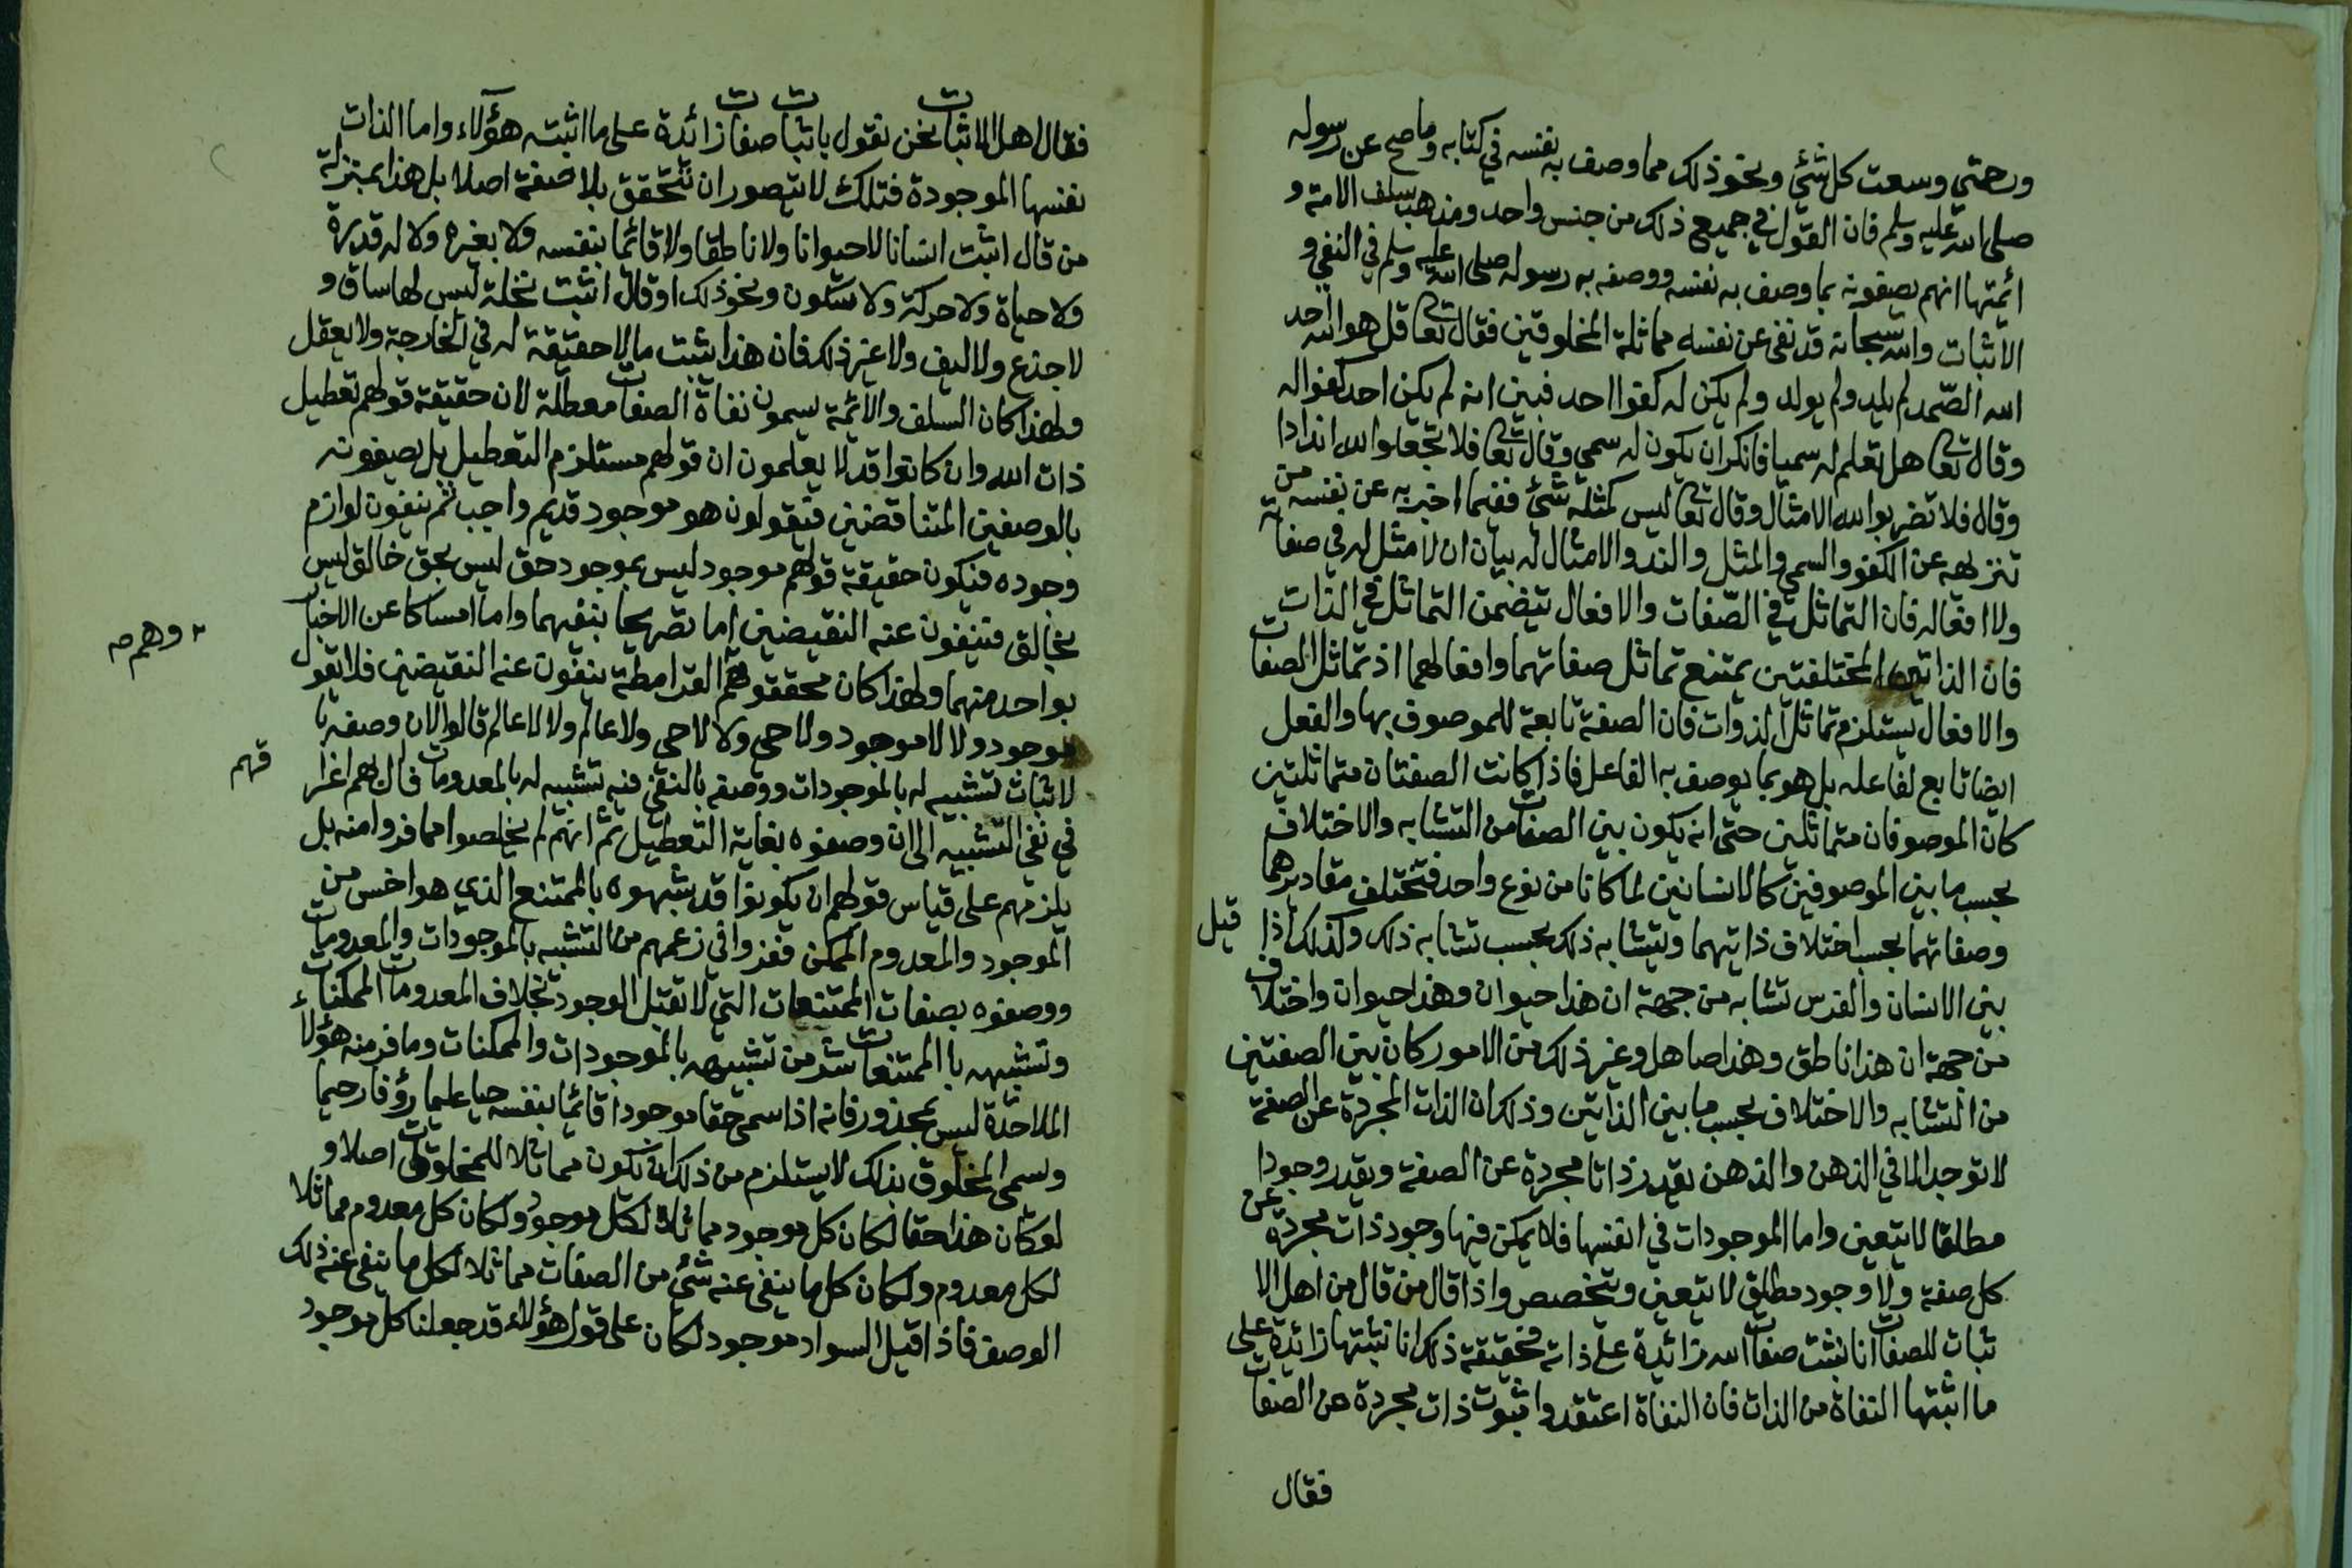 ورحمتي وسعت كل شئ ونحو ذلك مما وصف به نفسه في كتابه وما صح عن رسوله
صلى الله عليه وسلم فان القول في جميع ذلك من جنس واحد ومذهب سلف الامة و
ائمتها انهم يصفونه بما وصف به نفسه ووصفه به رسوله صلى الله عليه وسلم في النفي و
الاثبات والله سبحانه قد نفى عن نفسه مماثلة المخلوقين فقال تعا قل هو الله احد
الله الصمد لم يلد ولم يولد ولم يكن له كفوا احد فبين انه لم يكن احد كفوا له
وقال تعا هل تعلم له سميا فانكر ان يكون له سمي وقال تعا فلا تجعلوا لله اندادا
وقال فلا تضربوا لله الامثال وقال تعا ليس كمثله شئ ففيما اخبر به عن نفسه من
تنزيهه عن الكفو والسمي والمثل والند والامثال له بيان ان لا مثل له في صفاته
ولا افعاله فان التماثل في الصفات والافعال يتضمن التماثل في الذات
فان الذاتين المختلفتين يمتنع تماثل صفاتهما وافعالهما اذ تماثل الصفات
والافعال يستلزم تماثل الذوات فان الصفة تابعة للموصوف بها والفعل
ايضا تابع لفاعله بل هو بما يوصف به الفاعل فاذا كانت الصفتان متماثلتين
كان الموصوفان متماثلين حتى انه يكون بين الصفات من التشابه والاختلاف
بحسب ما بين الموصوفين كالانسانين لما كانا من نوع واحد فتختلف مقاديرهما
وصفاتهما بحسب اختلاف ذاتيهما ويتشابه ذلك بحسب تشابه ذلك وكذلك اذا قيل
بين الانسان والفرس تشابه من جهة ان هذا حيوان وهذا حيوان واختلاف
من جهة ان هذا ناطق وهذا صاهل وغير ذلك من الامور كان بين الصفتين
من التشابه والاختلاف بحسب ما بين الذاتين وذلك ان الذات المجردة عن الصفة
لا توجد الا في الذهن والذهن يقدر ذاتا مجردة عن الصفة ويقدر وجودا
مطلقا لا يتعين واما الموجودات في انفسها فلا يمكن فيها وجود ذات مجردة عن
كل صفة ولا وجود مطلق لا يتعين ويتخصص واذا قال من قال من اهل الا
ثبات للصفات انا نثبت صفات الله زائدة على ذاته فحقيقة ذلك انا نثبتها زائدة على
ما اثبتها النفاة من الذات فان النفاة اعتقدوا ثبوت ذات مجردة عن الصفات
فقال
فقال اهل الاثبات نحن نقول باثبات صفات زائدة على ما اثبته هؤلاء واما الذات
نفسها الموجودة فتلك لا يتصور ان تتحقق بلا صفة اصلا بل هذا بمنزلة
من قال اثبت انسانا لا حيوانا ولا ناطقا ولا قائما بنفسه ولا بغيره ولا له قدرة
ولا حياة ولا حركة ولا سكون ونحو ذلك او قال اثبت نخلة ليس لها ساق و
لا جذع ولا ليف ولا غير ذلك فان هذا يثبت ما لا حقيقة له في الخارجة ولا يعقل
ولهذا كان السلف والائمة يسمون نفاة الصفات معطلة لان حقيقة قولهم تعطيل
ذات الله وان كانوا قد لا يعلمون ان قولهم مستلزم التعطيل بل يصفونه
بالوصفين المتناقضين فيقولون هو موجود قديم واجب ثم ينفون لوازم
وجوده فيكون حقيقة قولهم موجود ليس بموجود حق ليس بحق خالق ليس
بخالق فينفون عنه النقيضين اما تصريحا بنفيهما واما امساكا عن الاخبار
وهم
بواحد منهما ولهذا كان محققوهم القرامطة ينفون عنه النقيضين فلا يقول
موجود ولا لا موجود ولا حي ولا لا حي ولا عالم ولا لا عالم قالوا لان وصفه با
لاثبات تشبيه له بالموجودات ووصفه بالنفي فيه تشبيه له بالمعدومات فال بهم اغرا
فهم
في نفي التشبيه الى ان وصفوه بغاية التعطيل ثم انهم لم يخلصوا مما فروا منه بل
يلزمهم على قياس قولهم ان يكونوا قد شبهوه بالممتنع الذي هو اخس من
الموجود والمعدوم الممكن ففروا في زعمهم من التشبيه بالموجودات والمعدومات
ووصفوه بصفات الممتنعات التي لا تقبل الوجود بخلاف المعدومات الممكنات
وتشبيهه با الممتنعات شر من تشبيهه بالموجودات والممكنات وما فر منه هؤلاء
الملاحدة ليس بمحذور فانه اذا سمى حقا موجودا قائما بنفسه حيا عليما رؤفا رحيما
وسمى المخلوق بذلك لا يستلزم من ذلك ان يكون مماثلا للمخلوقات اصلا و
لو كان هذا حقا لكان كل موجود مماثلا لكل موجود ولكان كل معدوم مماثلا
لكل معدوم ولكان كل ما ينفى عنه شئ من الصفات مماثلا لكل ما ينفى عنه ذلك
الوصف فاذا قيل السواد موجود لكان على قول هؤلاء قد جعلنا كل موجود